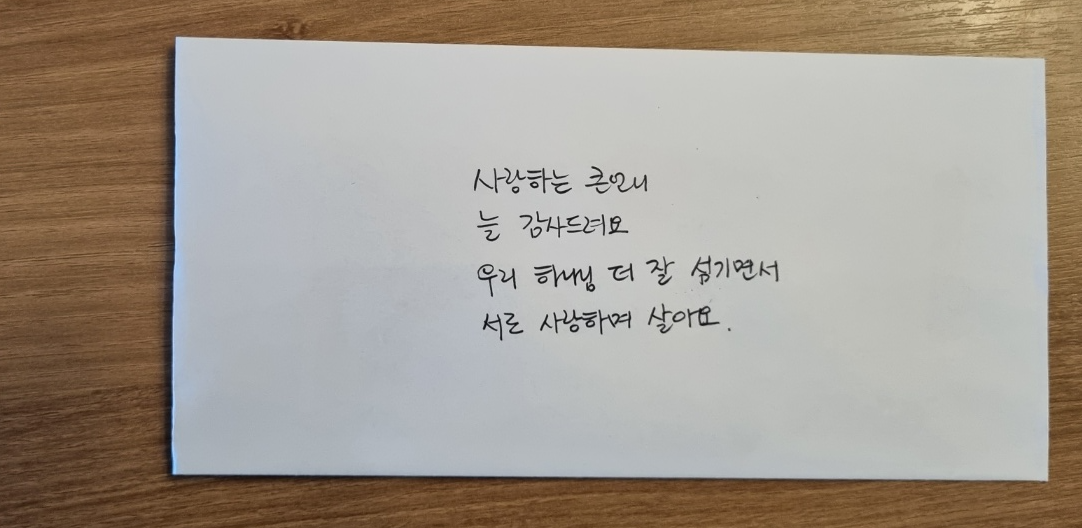 사랑하는 큰언니
늘 감사드려요
우리 하나님 더 잘 섬기면서
서로 사랑하며 살아요.